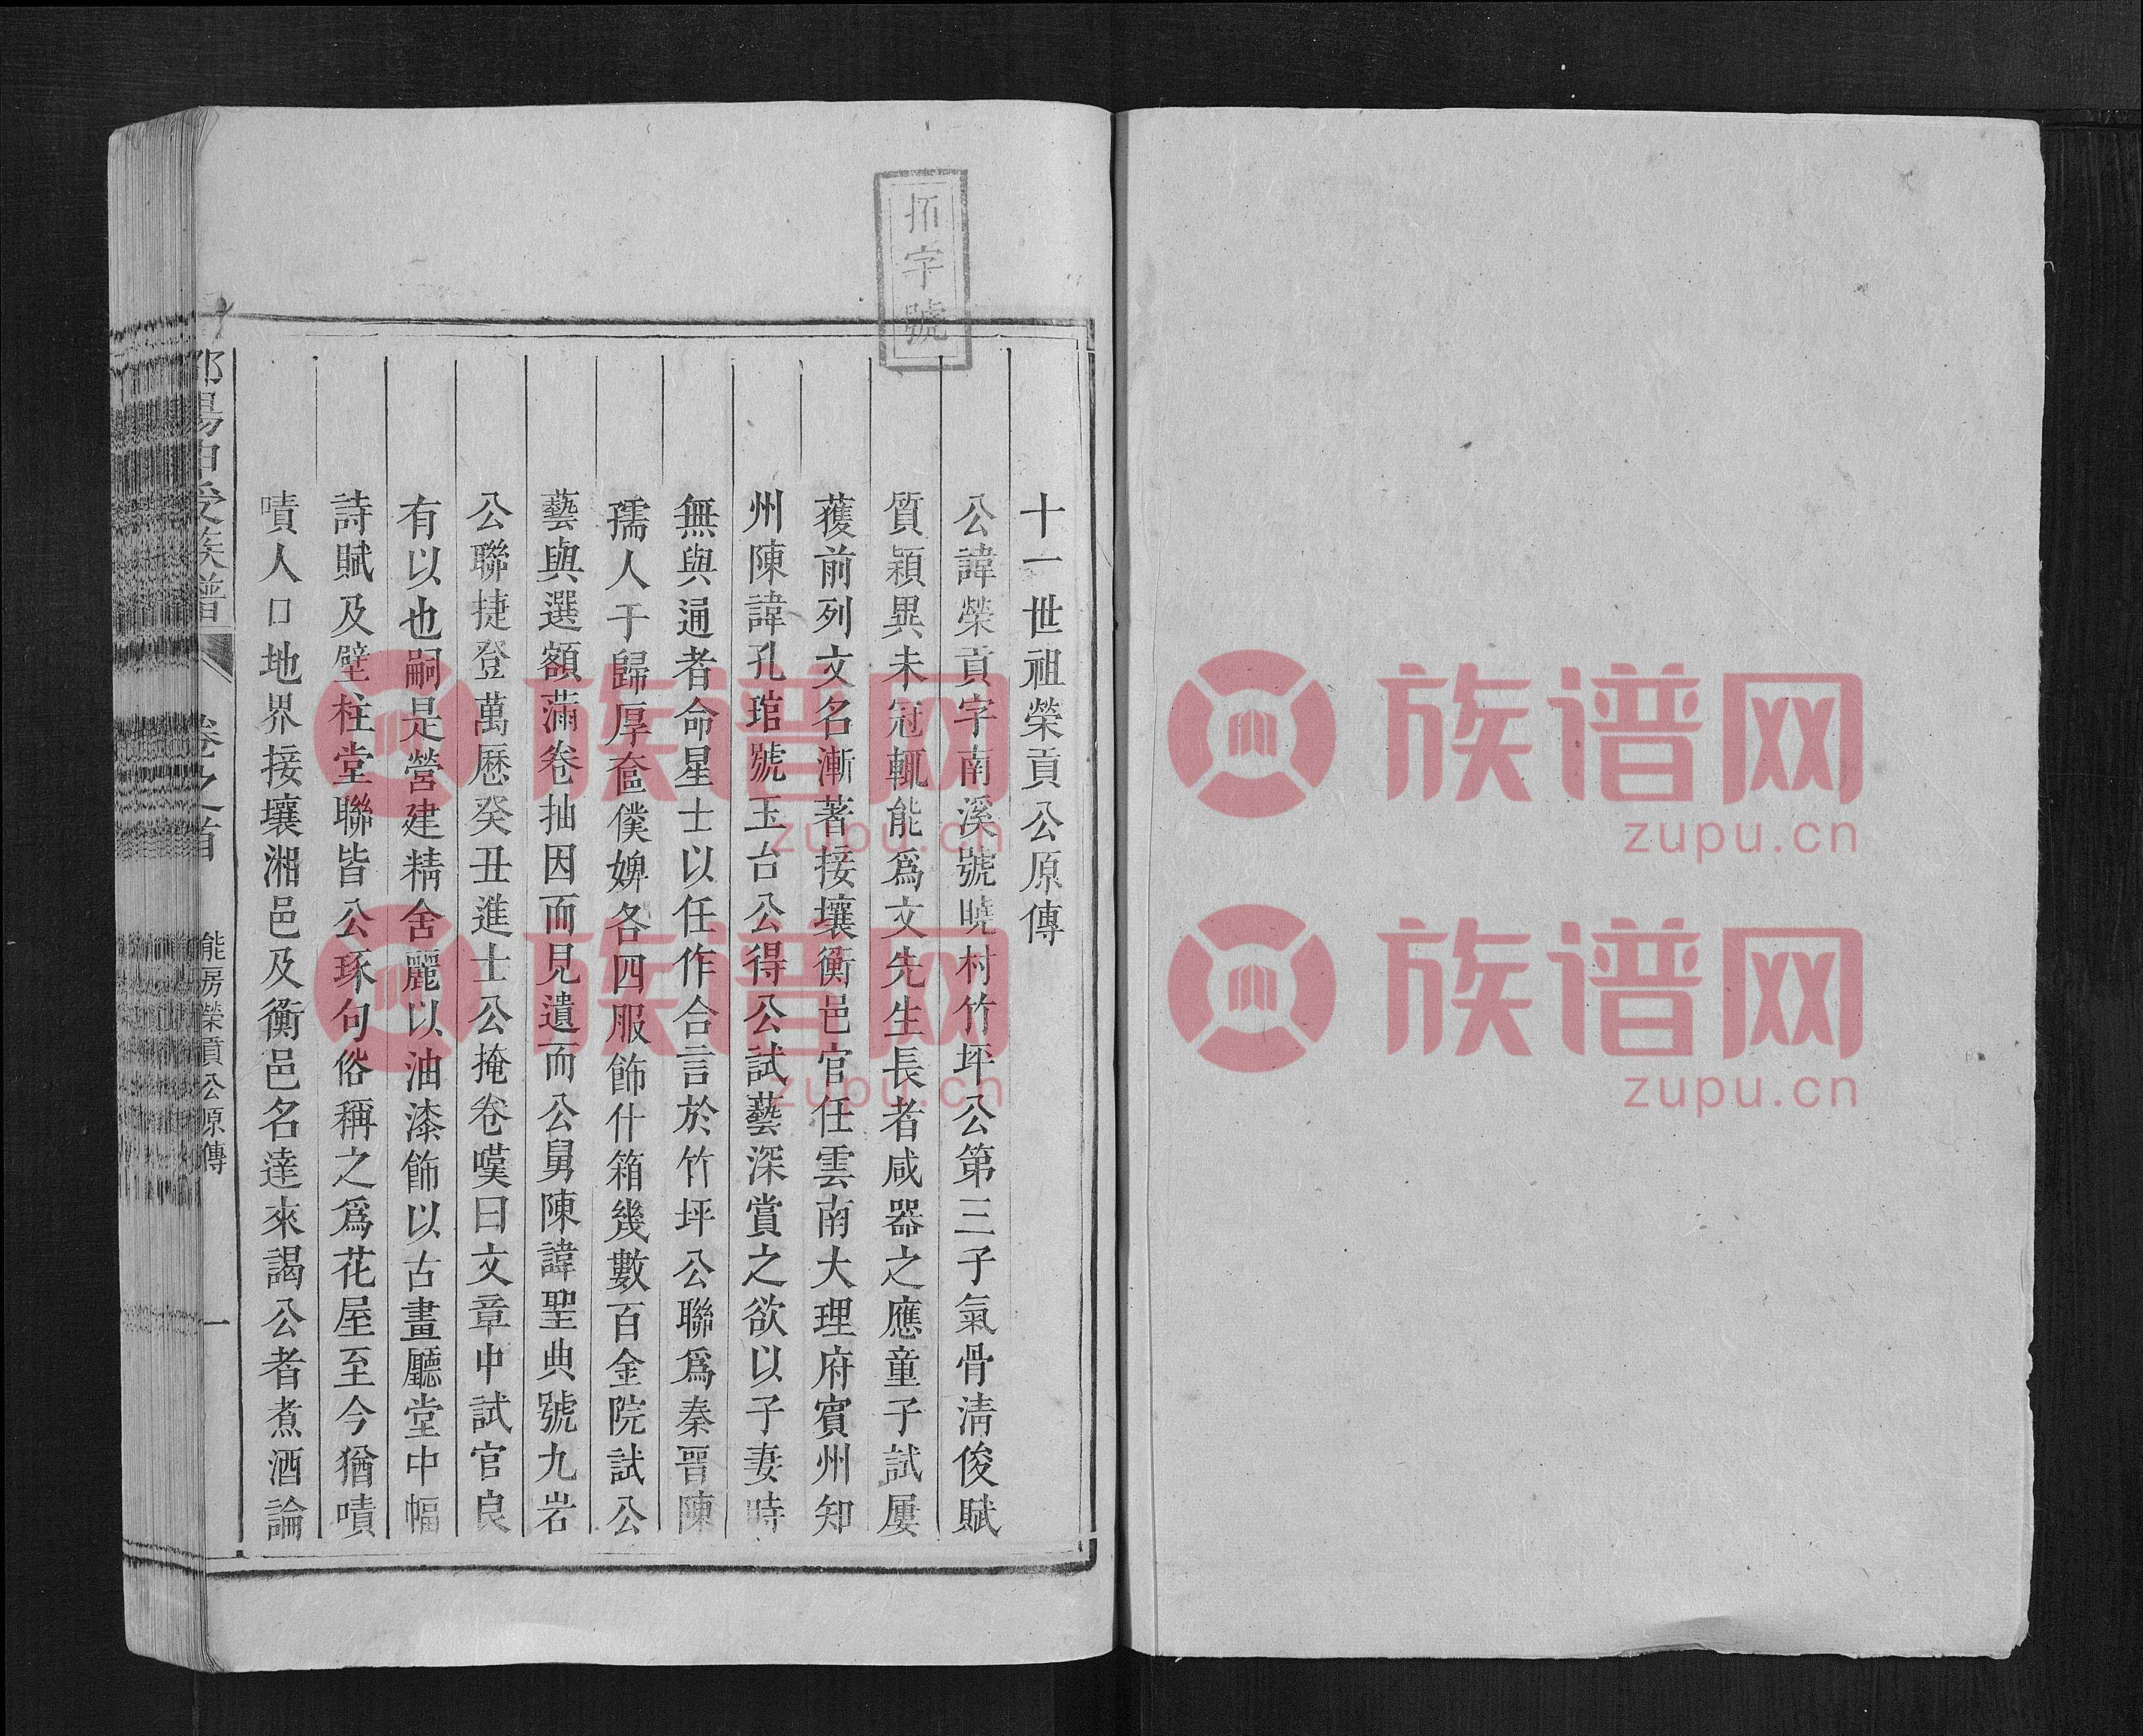 抓字號
十一世祖榮貢公原傳
公諱榮貢字南溪號曉村竹坪公第三子氣骨淸俊賦
質穎異未冠輒能爲文先生長者咸器之應童子試屢
獲前列文名漸著接壤衡邑官任雲南大理府賓州知
州陳諱孔琯號玉台公得公試藝深賞之欲以子妻時
無與通者命星士以任作合言於竹坪公聯爲秦晋陳
孺人于歸厚奩僕婢各四服飾什箱幾數百金院試公
藝與選額滿卷抽因而見遺而公舅陳諱聖典號九岩
公聯捷登萬曆癸丑進士公掩卷嘆曰文章中試官良
有以也嗣是營建精舍麗以油漆飾以古畫廳堂中幅
詩賦及壁柱堂聯皆公琢句俗稱之爲花屋至今猶嘖
嘖人口地界接壤湘邑及衡邑名達來謁公者煮酒論
族譜
卷之首
能房榮貢公原傳
一
族谱网
zupu.cn
族谱网
zupu.cn
族谱网
zupu.cn
族谱网
zupu.cn